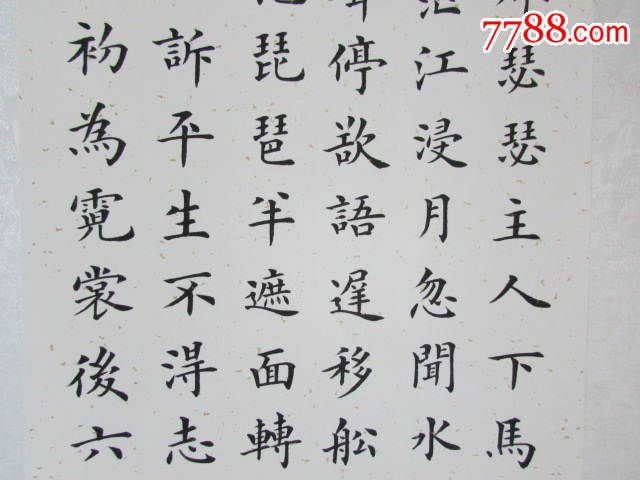 7788.com
瑟瑟主人下馬
江浸月忽聞水
停欲語遲移舩
琵琶半遮面轉
訴平生不淂志
初為霓裳後六